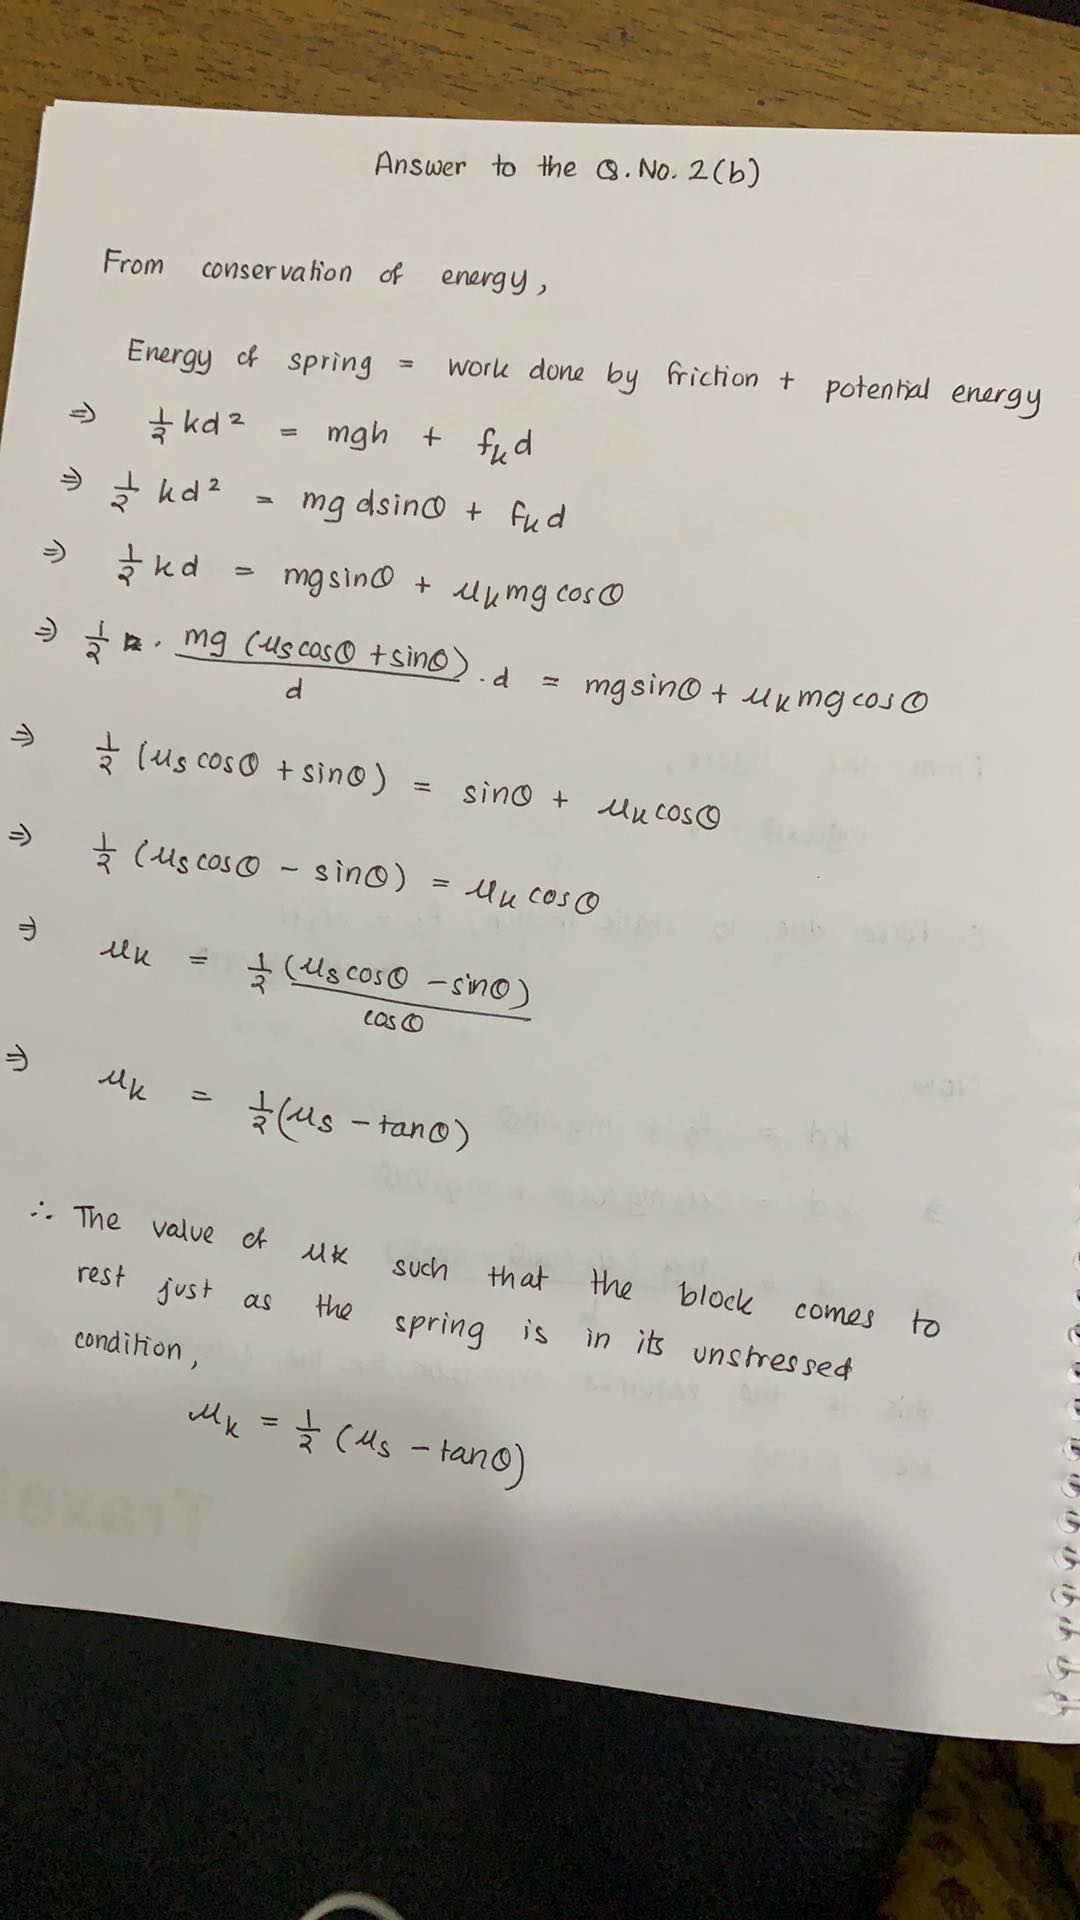 Answer to the Q. No. 2(b)
From conservation of energy,
Energy of spring = work done by friction + potential energy
⇒ 1/2 kd² = mgh + fₖd
⇒ 1/2 kd² = mg dsinθ + fₖd
⇒ 1/2 kd = mgsinθ + μₖmg cosθ
⇒ 1/2 · mg (μs cosθ + sinθ)/d · d = mgsinθ + μₖmg cosθ
⇒ 1/2 (μs cosθ + sinθ) = sinθ + μₖcosθ
⇒ 1/2 (μs cosθ - sinθ) = μₖ cosθ
⇒ μₖ = 1/2 (μs cosθ - sinθ)/cosθ
⇒ μₖ = 1/2 (μs - tanθ)
∴ The value of μₖ such that the block comes to
rest just as the spring is in its unstressed
condition,
μₖ = 1/2 (μs - tanθ)